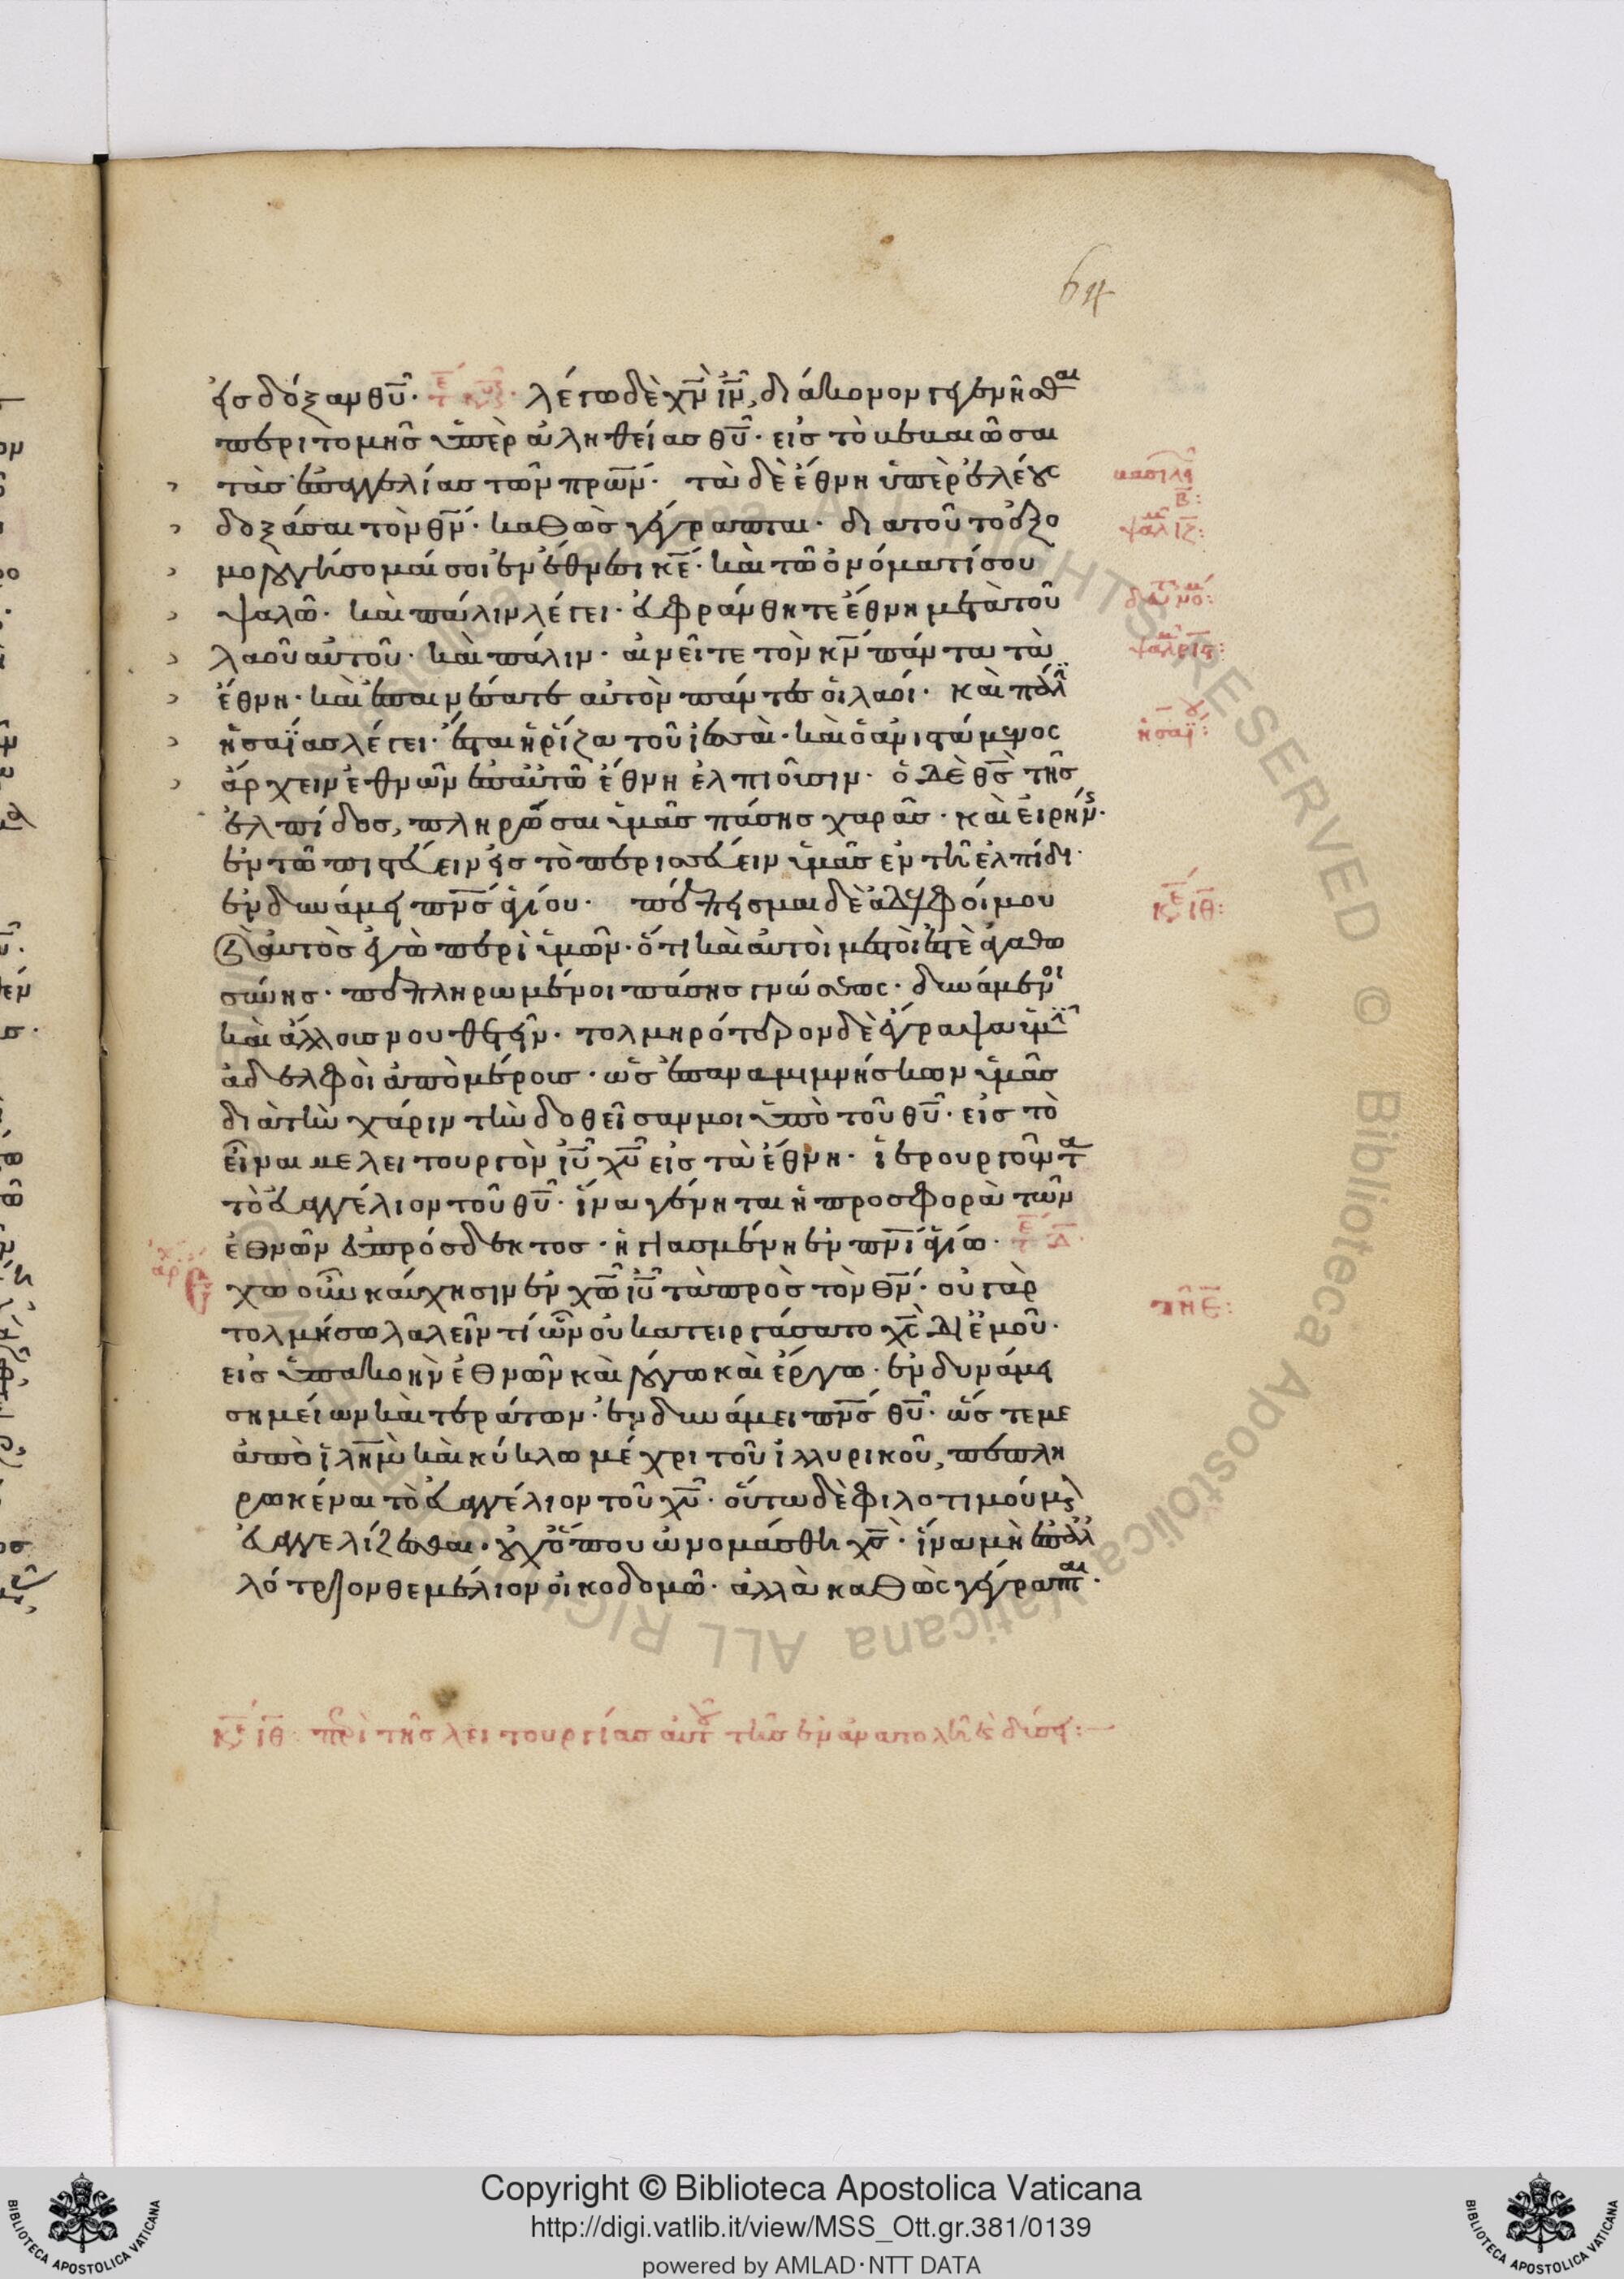 64
εἰς δόξαν θυ̅. λέγω δὲ χν̅ ιν̅, διάκονον γεγενῆσθαι
περιτομῆς ὑπὲρ ἀληθείας θυ̅. εἰς τὸ βεβαιῶσαι
τὰς ἐπαγγελίας τῶν πρων̅. τὰ δὲ ἔθνη ὑπὲρ ἐλέους
δοξάσαι τὸν θν̅. καθὼς γέγραπται. διατοῦτο ἐξο
μολογήσομαί σοι ἐν ἔθνεσι κε̅. καὶ τῶ ὀνόματί σου
ψαλῶ. καὶ πάλιν λέγει. εὐφράνθητε ἔθνη μετὰ τοῦ
λαοῦ αὐτοῦ. καὶ πάλιν. αἰνεῖτε τὸν κν̅ πάντα τὰ
ἔθνη. καὶ ἐπαινέσατε αὐτὸν πάντες οἱ λαοί. καὶ πάλϊ
ἠσαΐας λέγει. ἔσται ἡ ῥίζα τοῦ ἰεσσαὶ. καὶ ὁ ἀνιστάμενος
ἄρχειν ἐθνῶν ἐπ αὐτῶ ἔθνη ἐλπιοῦσιν. ὁ δὲ θς̅ τῆς
ἐλπίδος, πληρῶσαι ὑμᾶς πάσης χαρᾶς. καὶ εἰρήνης.
ἐν τῶ πιστεύειν εἰς τὸ περισσεύειν ὑμᾶς ἐν τῆ ἐλπίδι.
ἐν δυνάμει πνς̅ ἁγίου. πέπεισμαι δὲ ἀδελφοί μου
καὶ αὐτὸς ἐγὼ περὶ ὑμῶν. ὅτι καὶ αὐτοὶ μεστοί ἐστε ἀγαθω
σύνης. πεπληρωμένοι πάσης γνώσεως. δυνάμενοι
καὶ ἄλλους νουθετεῖν. τολμηρότερον δὲ ἔγραψα ὑμῖ
ἀδελφοὶ ἀπὸ μέρους. ὡς ἐπαναμιμνήσκων ὑμᾶς
διὰ τὴν χάριν τὴν δοθεῖσαν μοι ὑπὸ τοῦ θυ̅. εἰς τὸ
εἶναι με λειτουργὸν ιυ̅ χυ̅ εἰς τὰ ἔθνη. ἱερουργοῦντα
τὸ εὐαγγέλιον τοῦ θυ̅. ἵνα γένηται ἡ προσφορὰ τῶν
ἐθνῶν εὐπρόσδεκτος. ἡγιασμένη ἐν πνι̅ ἁγίω.
ἔχω οὖν καύχησιν ἐν χω̅ ιυ̅ τὰ πρὸς τὸν θν̅. οὐ γὰρ
τολμήσω λαλεῖν τί ὧν οὐ κατειργάσατο χς̅ δι ἐμοῦ.
εἰς ὑπακοὴν ἐθνῶν καὶ λόγω καὶ ἔργω. ἐν δυνάμει
σημείων καὶ τεράτων. ἐν δυνάμει πνς̅ θυ̅. ὥς τε με
ἀπὸ ἰλημ̅ καὶ κύκλω μέχρι τοῦ ἰλλυρικοῦ, πεπλη
ρωκέναι τὸ εὐαγγέλιον τοῦ χυ̅. οὕτω δὲ φιλοτιμούμε
εὐαγγελίζεσθαι. οὐχ ὅπου ὠνομάσθη χς̅. ἵνα μὴ ἐπ ἀλ
λότριον θεμέλιον οἰκοδομῶ. ἀλλὰ καθὼς γέγραπται.
ψαλ ιζ:
ψαλ ριϛ:
ἠσαΐ:
κε ιθ:
τῆ ε̅:
κε ιθ περὶ τῆς λειτουργίας αὐτοῦ τῆς ἐν ἀνατολῆ καὶ δύσει:—
ALL RIGHTS RESERVED © Biblioteca Apostolica Vaticana
Copyright © Biblioteca Apostolica Vaticana
http://digi.vatlib.it/view/MSS_Ott.gr.381/0139
powered by AMLAD·NTT DATA
BIBLIOTECA APOSTOLICA VATICANA
BIBLIOTECA APOSTOLICA VATICANA